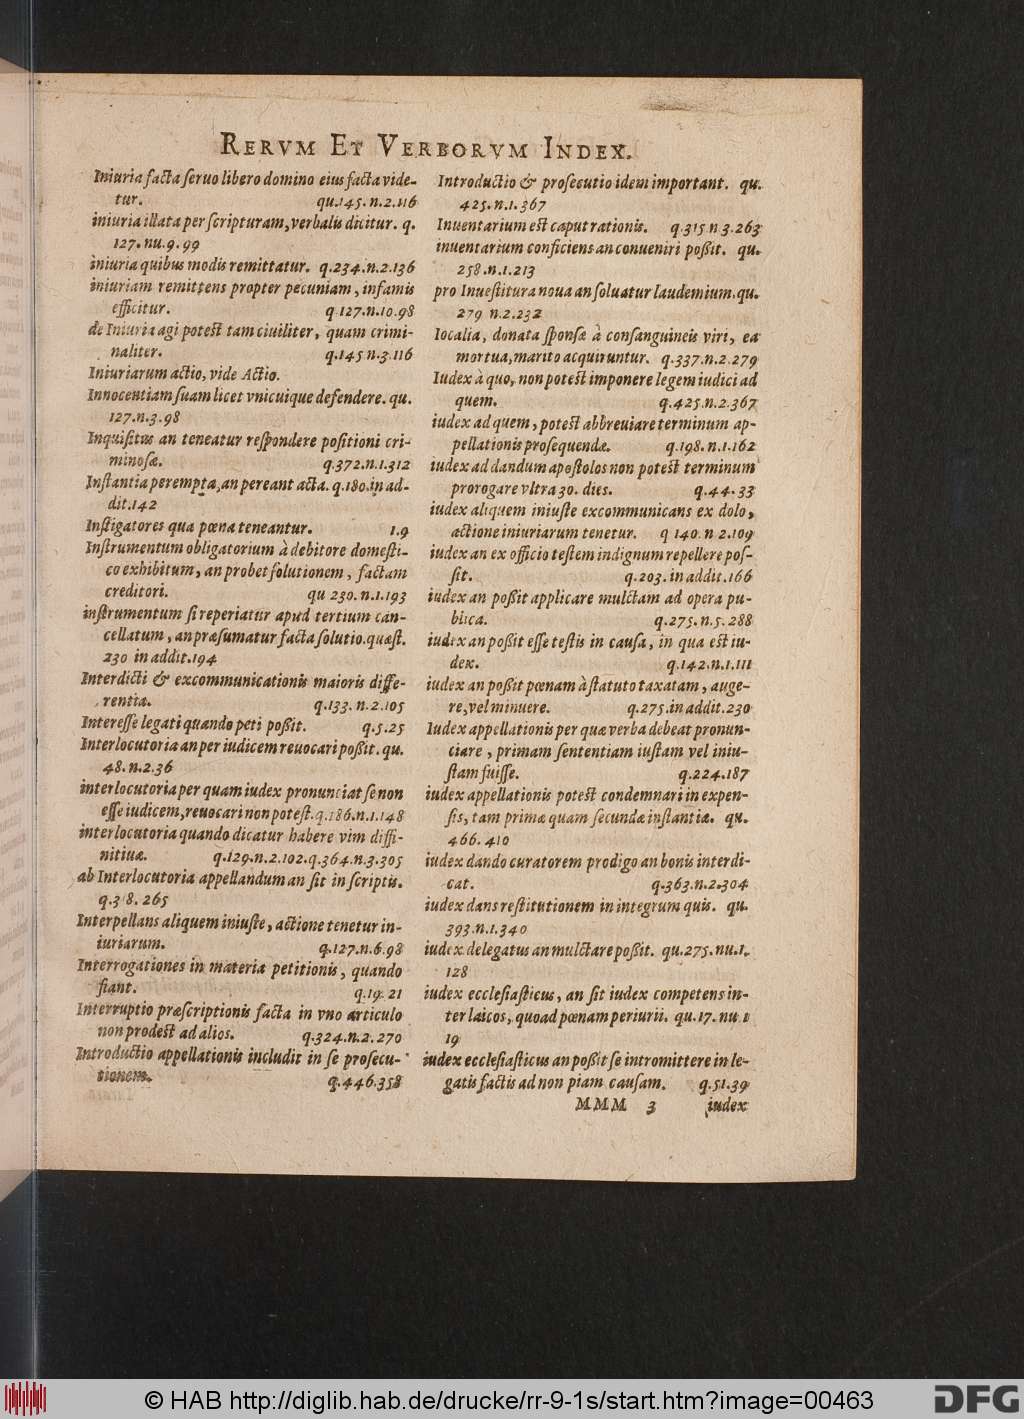 RERVM ET VERBORVM INDEX.
Iniuria facta seruo libero domino eius facta vide-
tur. qu.145. n.2.116
iniuria illata per scripturam, verbalis dicitur. q.
127. nu.9.99
iniuria quibus modis remittatur. q.234.n.2.136
iniuriam remittens propter pecuniam, infamis
efficitur. q 127.n.10.98
de Iniuria agi potest tam ciuiliter, quam crimi-
naliter. q.145 n.3.116
Iniuriarum actio, vide Actio.
Innocentiam suam licet vnicuique defendere. qu.
127.n.3.98
Inquisitus an teneatur respondere positioni cri-
minosæ. q.372.n.1.312
Instantia perempta, an pereant acta. q.180.in ad-
dit.142
Instigatores qua pœna teneantur. 1.9
Instrumentum obligatorium à debitore domesti-
co exhibitum, an probet solutionem, factam
creditori. qu 230.n.1.193
instrumentum si reperiatur apud tertium can-
cellatum, an præsumatur facta solutio. quæst.
230 in addit.194
Interdicti & excommunicationis maioris diffe-
rentia. q.133. n.2.105
Interesse legati quando peti poßit. q.5.25
Interlocutoria an per iudicem reuocari poßit. qu.
48.n.2.36
interlocutoria per quam iudex pronunciat se non
esse iudicem, reuocari non potest. q.186.n.1.148
interlocutoria quando dicatur habere vim diffi-
nitiuæ. q.129.n.2.102.q.364.n.3.305
ab Interlocutoria appellandum an sit in scriptis.
q.318. 265
Interpellans aliquem iniuste, actione tenetur in-
iuriarum. q.127.n.6.98
Interrogationes in materia petitionis, quando
fiant. q.19. 21
Interruptio præscriptionis facta in vno articulo
non prodest ad alios. q.324.n.2.270
Introductio appellationis includit in se prosecu-
tionem. q.446.358
Introductio & prosecutio idem important. qu.
425.n.1.367
Inuentarium est caput rationis. q.315 n 3.263
inuentarium conficiens an conueniri poßit. qu.
258.n.1.213
pro Inuestitura noua an soluatur laudemium. qu.
279 n.2.232
Iocalia, donata sponsæ à consanguineis viri, ea
mortua, marito acquiruntur. q.337.n.2.279
Iudex à quo, non potest imponere legem iudici ad
quem. q.425.n.2.367
iudex ad quem, potest abbreuiare terminum ap-
pellationis prosequendæ. q.198.n.1.162
iudex ad dandum apostolos non potest terminum
prorogare vltra 30. dies. q.44.33
iudex aliquem iniuste excommunicans ex dolo,
actione iniuriarum tenetur. q 140.n 2.109
iudex an ex officio testem indignum repellere pos-
sit. q.203. in addit.166
iudex an poßit applicare mulctam ad opera pu-
blica. q.275.n.5.288
iudex an poßit esse testis in causa, in qua est iu-
dex. q.142.n.1.111
iudex an poßit pœnam à statuto taxatam, auge-
re, vel minuere. q.275.in addit.230
Iudex appellationis per quæ verba debeat pronun-
ciare, primam sententiam iustam vel iniu-
stam fuisse. q.224.187
iudex appellationis potest condemnari in expen-
sis, tam primæ quam secundæ instantiæ. qu.
466. 410
iudex dando curatorem prodigo an bonis interdi-
cat. q.363.n.2.304
iudex dans restitutionem in integrum quis. qu.
393.n.1.340
iudex delegatus an mulctare poßit. qu.275.nu.1.
128
iudex ecclesiasticus, an sit iudex competens in-
ter laicos, quoad pœnam periurii. qu.17. nu 1
19
iudex ecclesiasticus an poßit se intromittere in le-
gatis factis ad non piam causam. q.51.39
MMM 3 iudex
© HAB http://diglib.hab.de/drucke/rr-9-1s/start.htm?image=00463
DFG